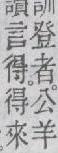 訓登者。公羊
言得。得來